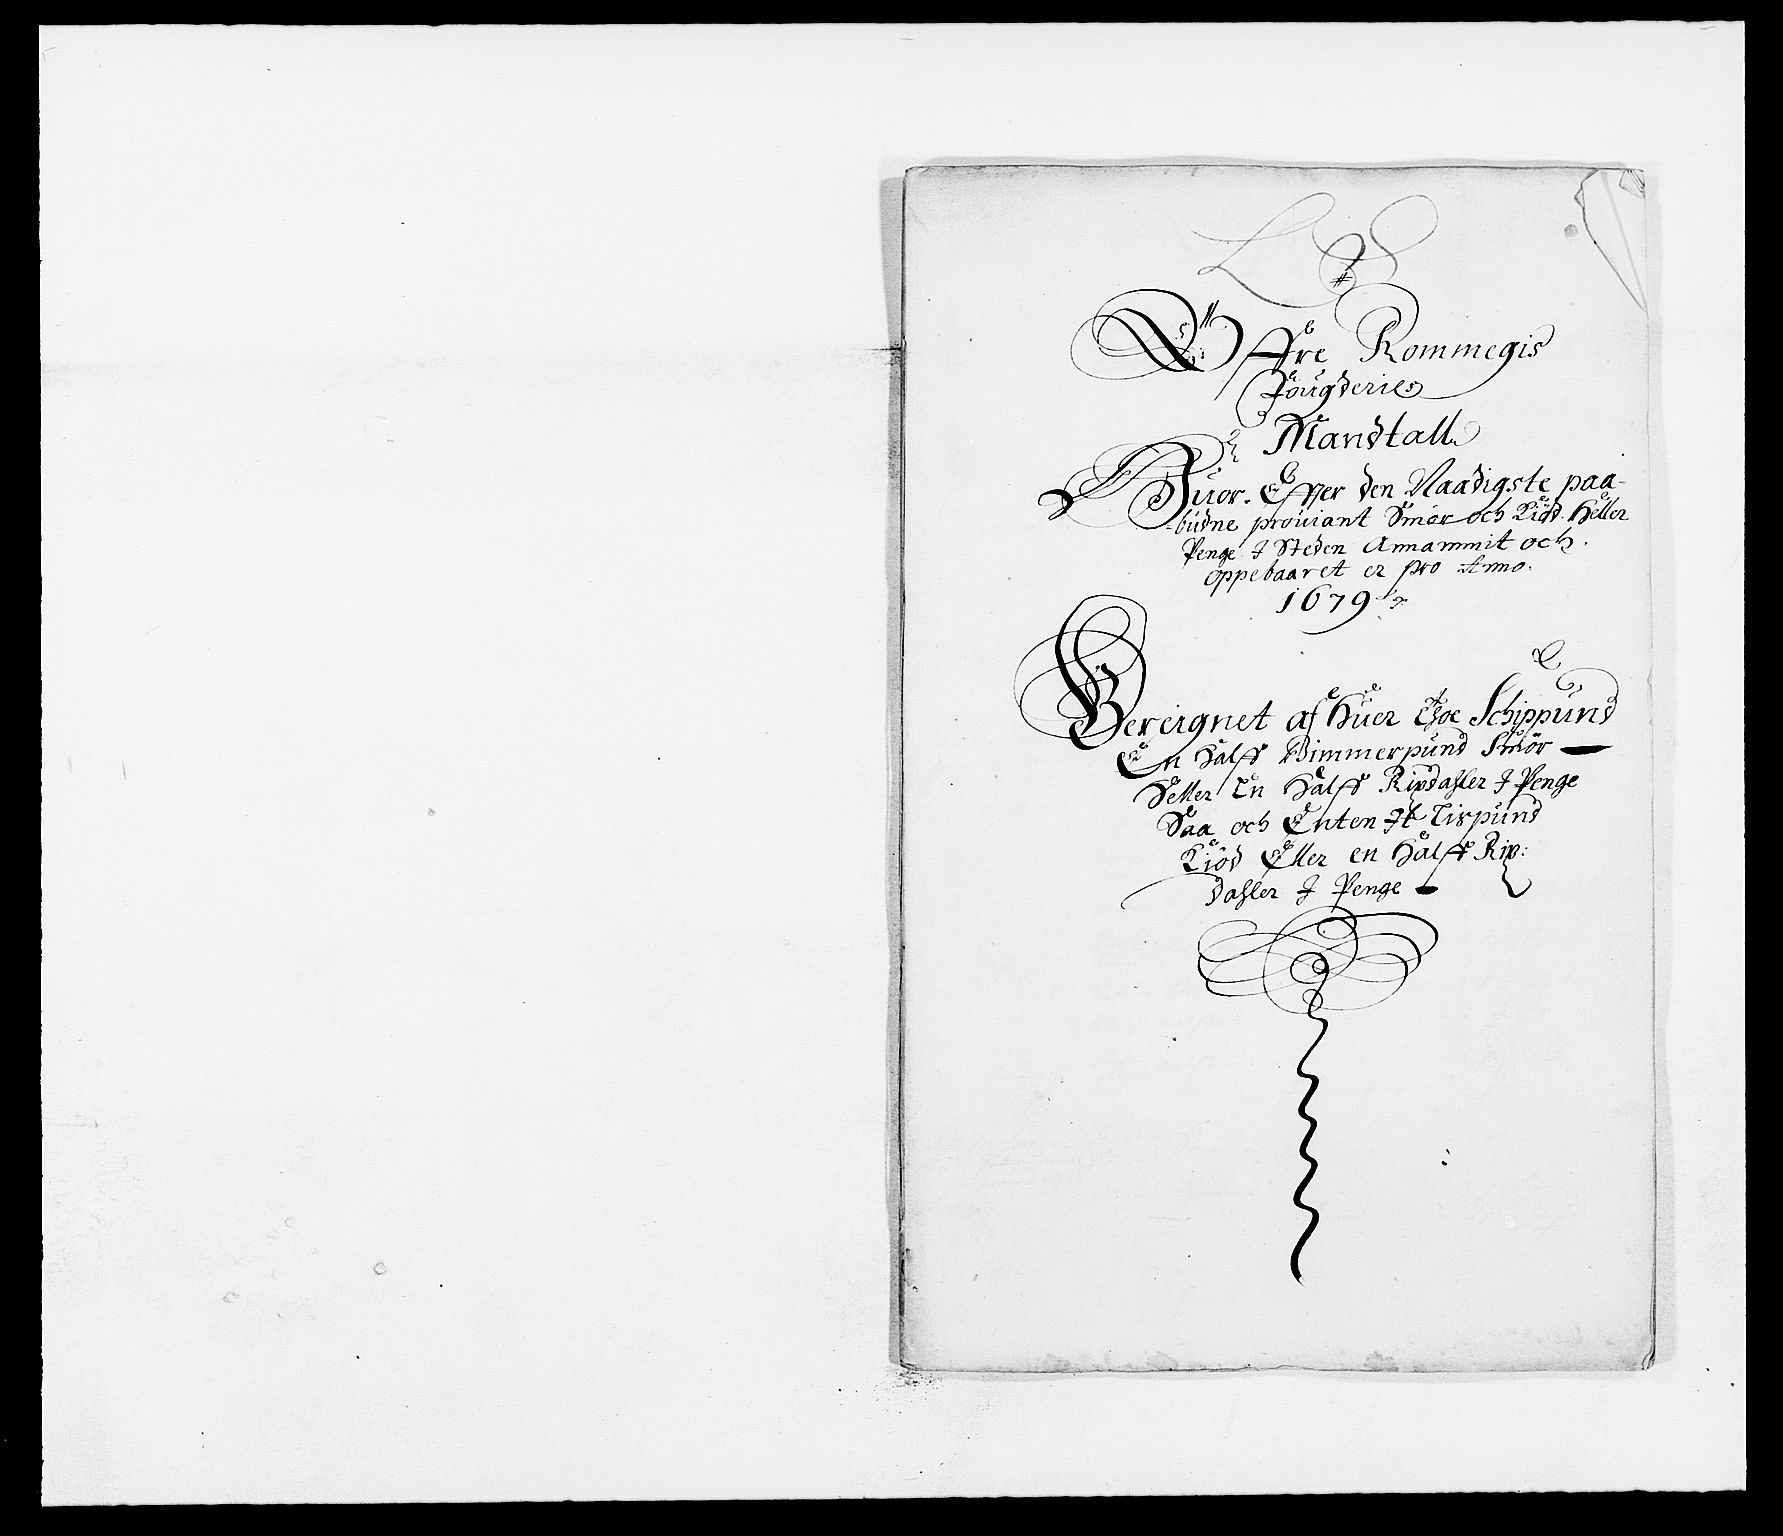 Øffre Rommegis
Fougderies
Mandtall
Huor Effter den Naadigste paa-
-budne prouiant Smør och Kiød Heller
Penge I Steden Annammit och
oppebaaret er pro Anno.
1679
Bereignet af Huer Thoe Schippund
En Halff Bimmerpund Smør
Heller En Halff Rixdahler I Penge
Saa och Enten It Lispund
Kiød Eller en Halff Rix:
dahler I Penge